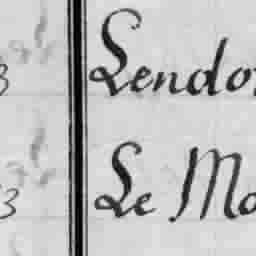 3 Lendo
3 Le Mo